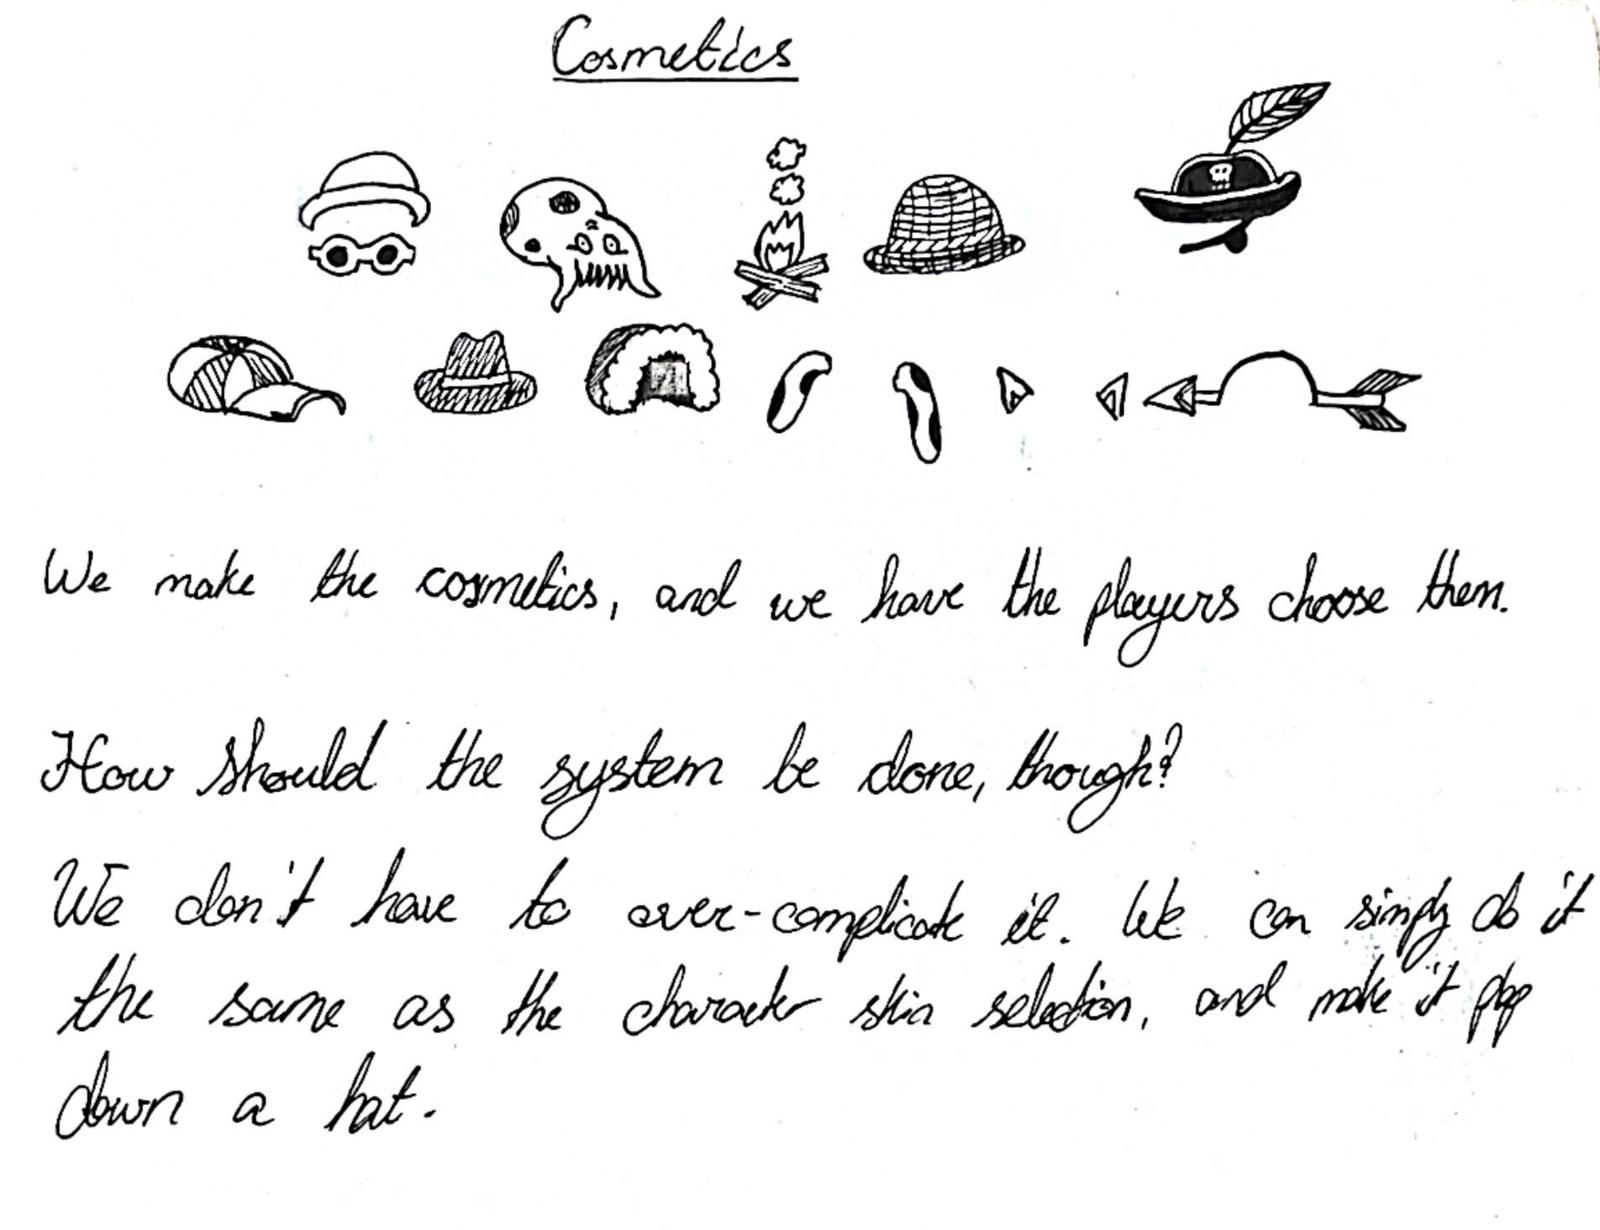 Cosmetics
We make the cosmetics, and we have the players choose them.
How should the system be done, though?
We don't have to over-complicate it. We can simply do it
the same as the character skin selection, and make it plop
down a hat.